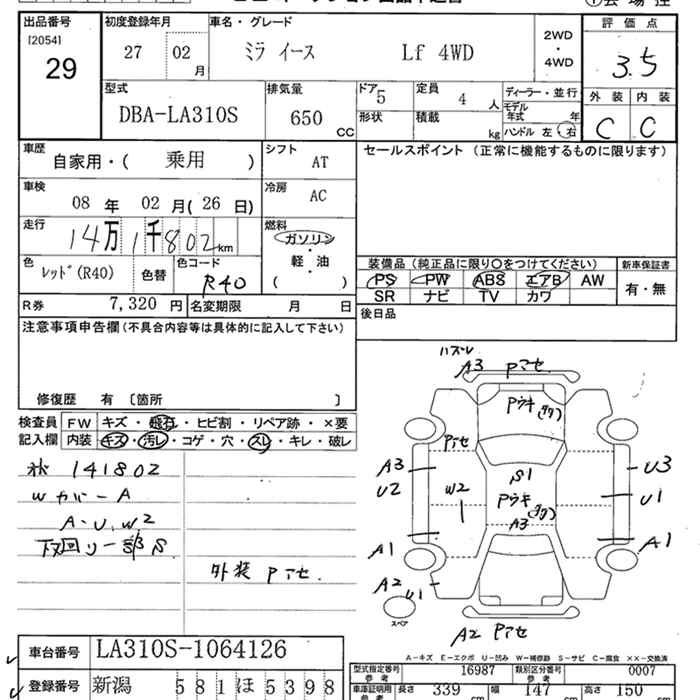 出品番号 初度登録年月 車名・グレード 評価点
[2054]
29
27 02 月
ミラ イース Lf 4WD
2WD
・
4WD
3.5
型式
DBA-LA310S
排気量
650 CC
ドア 5
定員 4 人
ディーラー・並行
モデル年式 年
形状 積載 kg ハンドル 左・右
外装 内装
C C
車歴 自家用・( 乗用 )
シフト AT
セールスポイント (正常に機能するものに限ります)
車検 08 年 02 月( 26 日)
冷房 AC
走行 14万1千802km
燃料
ガソリン
・
軽・油
( )
色 レッド(R40) 色替 色コード R40
装備品 (純正品に限り○をつけてください) 新車保証書
PS PW ABS エアB AW
SR ナビ TV カワ
有・無
R券 7,320 円 名変期限 月 日
後日品
注意事項申告欄 (不具合内容等は具体的に記入して下さい)
修復歴 有 〔箇所 〕
検査員 FW キズ・飛石・ヒビ割・リペア跡・×要
記入欄 内装 キズ・汚レ・コゲ・穴・スレ・キレ・破レ
141802
Wカバー A
A・U、W2
下回リ一部S
外装 Pアセ.
ハズレ
A3 Pアセ
Pウキ
Pアセ
A3
U2
W2
S1
Pウキ
A3
U3
U1
A1
A1
A2
U1
スペア
A2 Pアセ
A-キズ E-エクボ U-凹み W-補修跡 S-サビ C-腐食 ××-交換済
車台番号 LA310S-1064126
型式指定番号 参考 16987 類別区分番号 参考 0007
登録番号 新潟 581ほ5398
車庫証明用 参考 長さ 339 幅 147 高さ 150